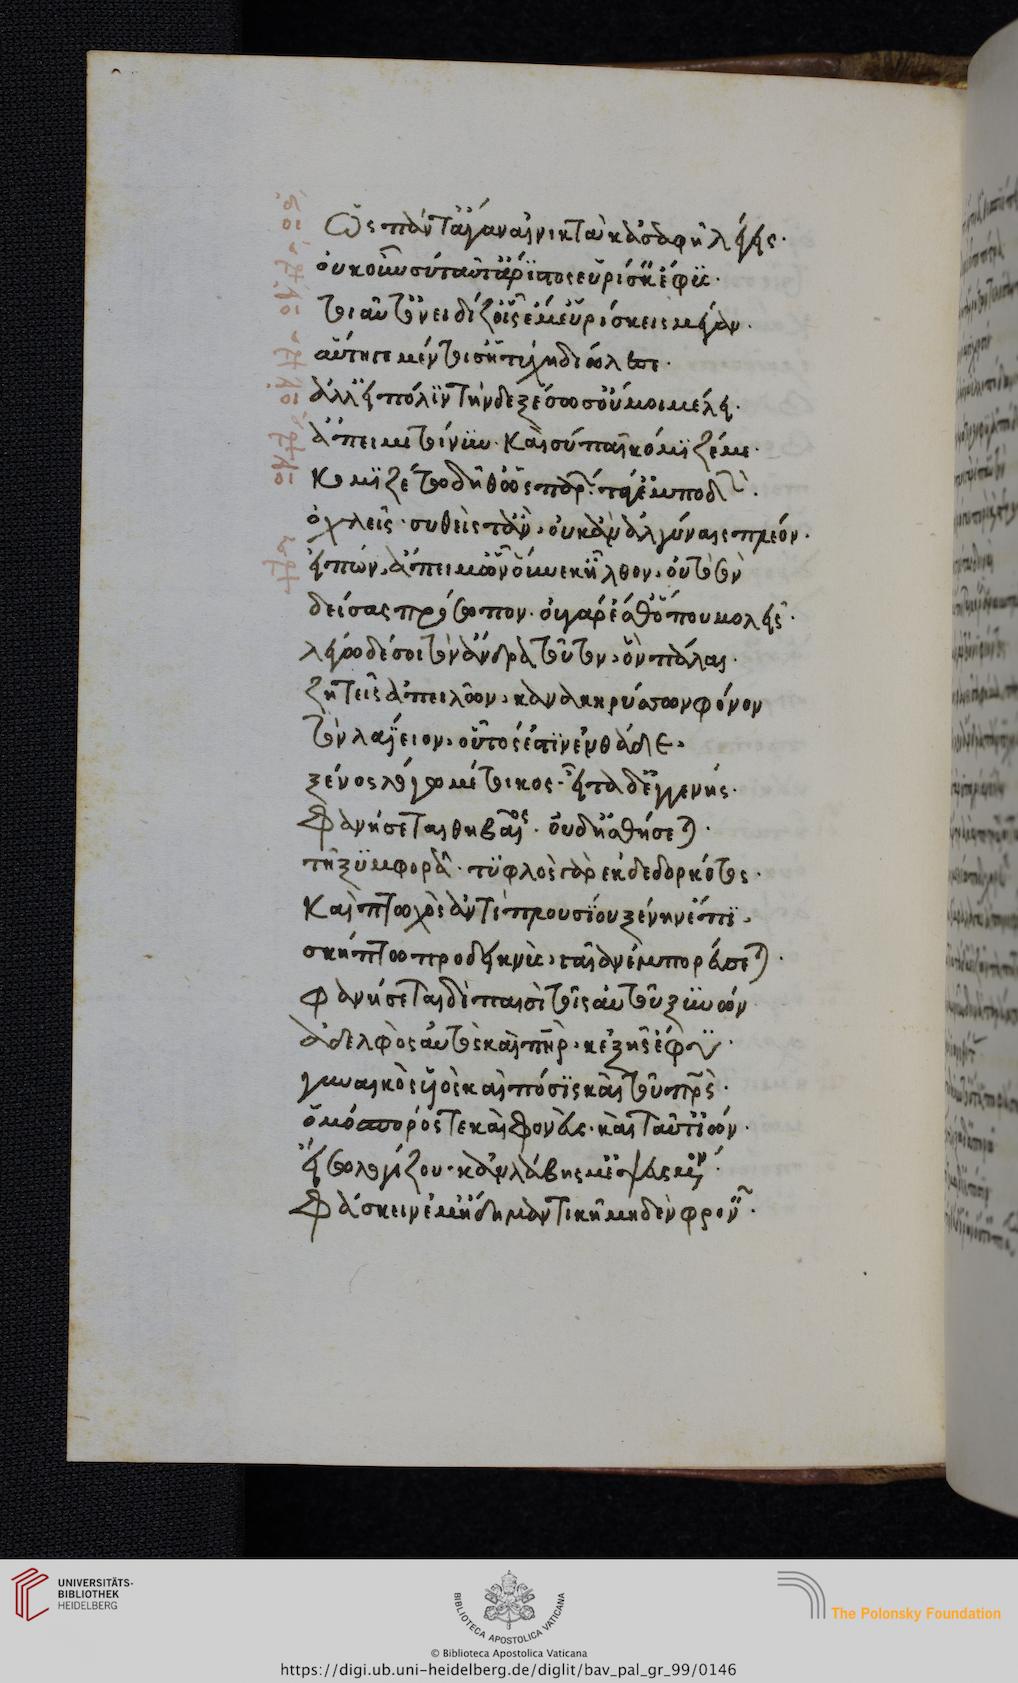 Ὡς πάντ' ἄγαν αἰνικτὰ κἀσαφῆ λέγεις·
οὔκουν σὺ ταῦτ' ἄριστος εὑρίσκειν ἔφυς·
τοιαῦτ' ὀνείδιζ' οἷς ἔμ' εὑρήσεις μέγαν.
αὕτη γε μέντοι σ' ἡ τύχη διώλεσε.
ἀλλ' εἰ πόλιν τήνδ' ἐξέσωσ' οὔ μοι μέλει.
ἄπειμι τοίνυν· καὶ σύ παῖ κόμιζέ με·
κομιζέτω δῆθ' ὡς παρὼν τά γ' ἐμποδὼν
ὀχλεῖς· συθείς τ' ἂν, οὐκ ἂν ἀλγύναις πλέον.
εἰπών, ἄπειμ' ὧν οὕνεκ' ἦλθον, οὐ τὸ σὸν
δείσας πρόσωπον. οὐ γὰρ ἔσθ' ὅπου μ' ὀλεῖς·
λέγω δέ σοι τὸν ἄνδρα τοῦτον, ὃν πάλαι
ζητεῖς ἀπειλῶν, κἀνακηρύσσων φόνον
τὸν λαΐειον, οὗτός ἐστιν ἐνθάδε,
ξένος λόγῳ μέτοικος· εἶτα δ' ἐγγενὴς
φανήσεται θηβαῖος· οὐδ' ἡσθήσεται
τῇ ξυμφορᾷ· τυφλὸς γὰρ ἐκ δεδορκότος·
καὶ πτωχὸς ἀντὶ πλουσίου ξένην ἔπι,
σκήπτρῳ προδεικνὺς, γαῖαν ἐμπορεύσεται·
φανήσεται δὲ παισὶ τοῖς αὑτοῦ ξυνὼν
ἀδελφὸς αὑτὸς καὶ πατήρ, κἀξ ἧς ἔφυ
γυναικὸς υἱὸς καὶ πόσις καὶ τοῦ πατρὸς
ὁμόσπορός τε καὶ φονεύς. καὶ ταῦτ' ἰὼν
εἴσω λογίζου· κἂν λάβῃς μ' ἐψευσμένον
φάσκειν ἔμ' ἤδη μαντικῇ μηδὲν φρονεῖν.
UNIVERSITÄTS-
BIBLIOTHEK
HEIDELBERG
BIBLIOTECA APOSTOLICA VATICANA
The Polonsky Foundation
© Biblioteca Apostolica Vaticana
https://digi.ub.uni-heidelberg.de/diglit/bav_pal_gr_99/0146